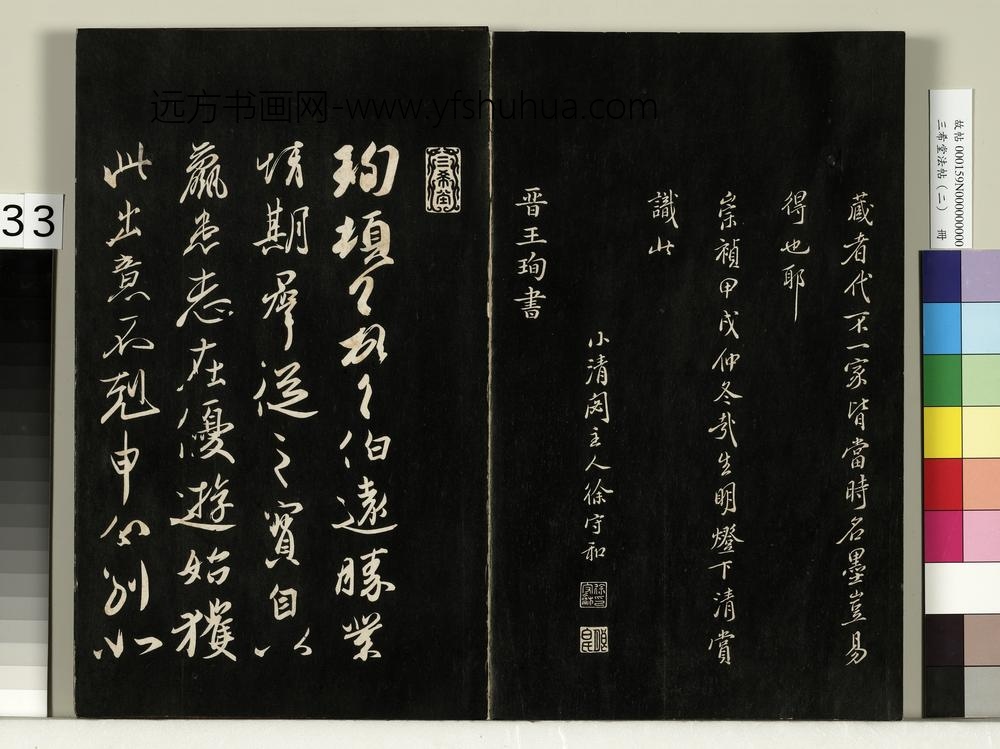 藏者代不一家皆當時名墨豈易
得也耶
崇禎甲戌仲冬哉生明燈下清賞
識此
小清閟主人徐守和
晋王珣書
三希堂
珣頓首頓首伯遠勝業
情期群從之寶自以
羸患志在優遊始獲
此出意不剋申分别如
远方书画网-www.yfshuhua.com
故帖 000159N000000000
三希堂法帖(二) 冊
33